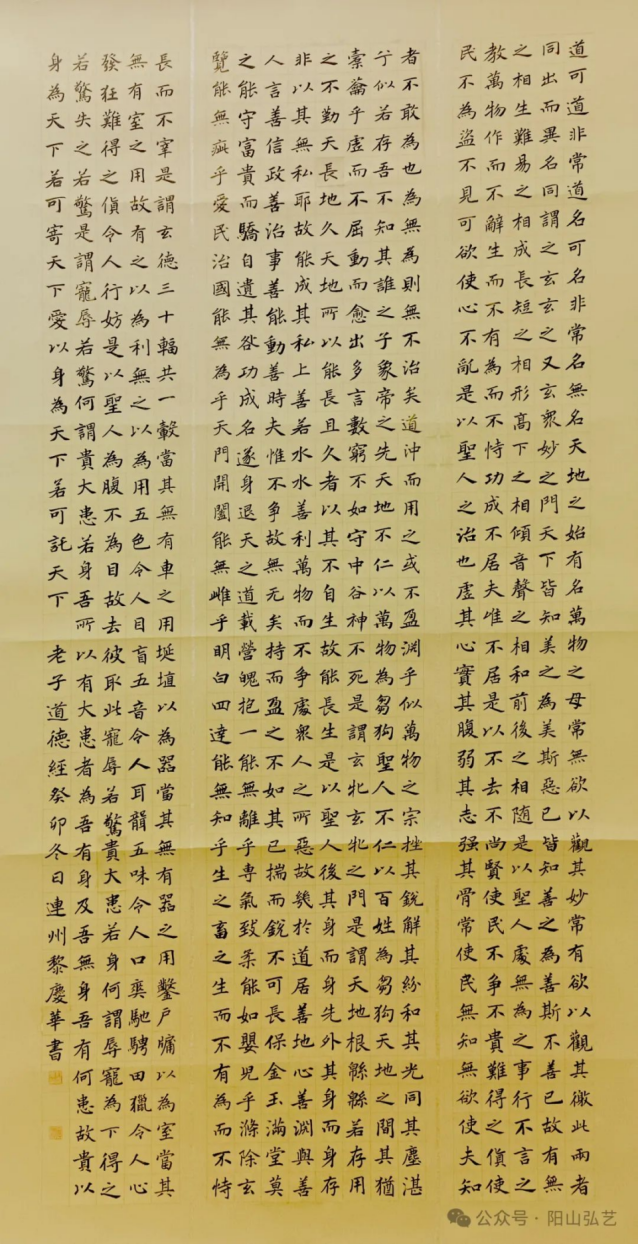 道可道非常道名可名非常名無名天地之始有名萬物之母常無欲以觀其妙常有欲以觀其徼此兩者
同出而異名同謂之玄玄之又玄衆妙之門天下皆知美之為美斯惡已皆知善之為善斯不善已故有無
之相生難易之相成長短之相形高下之相傾音聲之相和前後之相隨是以聖人處無為之事行不言之
教萬物作而不辭生而不有為而不恃功成不居夫唯不居是以不去不尚賢使民不爭不貴難得之貨使
民不為盜不見可欲使心不亂是以聖人之治也虛其心實其腹弱其志强其骨常使民無知無欲使夫知
者不敢為也為無為則無不治矣道沖而用之或不盈淵乎似萬物之宗挫其銳解其紛和其光同其塵湛
兮似若存吾不知其誰之子象帝之先天地不仁以萬物為芻狗聖人不仁以百姓為芻狗天地之間其猶
橐籥乎虛而不屈動而愈出多言數窮不如守中谷神不死是謂玄牝玄牝之門是謂天地根緜緜若存用
之不勤天長地久天地所以能長且久者以其不自生故能長生是以聖人後其身而身先外其身而身存
非以其無私耶故能成其私上善若水水善利萬物而不爭處衆人之所惡故幾於道居善地心善淵與善
人言善信政善治事善能動善時夫惟不争故無尤矣持而盈之不如其已揣而銳不可長保金玉滿堂莫
之能守富貴而驕自遺其欲功成名遂身退天之道載營魄抱一能無離乎專氣致柔能如嬰兒乎滌除玄
覽能無疵乎愛民治國能無為乎天門開闔能無雌乎明白四達能無知乎生之畜之生而不有為而不恃
長而不宰是謂玄德三十輻共一轂當其無有車之用埏埴以為器當其無有器之用鑿戶牖以為室當其
無有室之用故有之以為利無之以為用五色令人目盲五音令人耳聾五味令人口爽馳騁田獵令人心
發狂難得之貨令人行妨是以聖人為腹不為目故去彼取此寵辱若驚貴大患若身何謂辱寵為下得之
若驚失之若驚是謂寵辱若驚何謂貴大患若身吾所以有大患者為吾有身及吾無身吾有何患故貴以
身為天下若可寄天下愛以身為天下若可託天下 老子道德經癸卯冬日連州黎慶華書
公众号·阳山弘艺